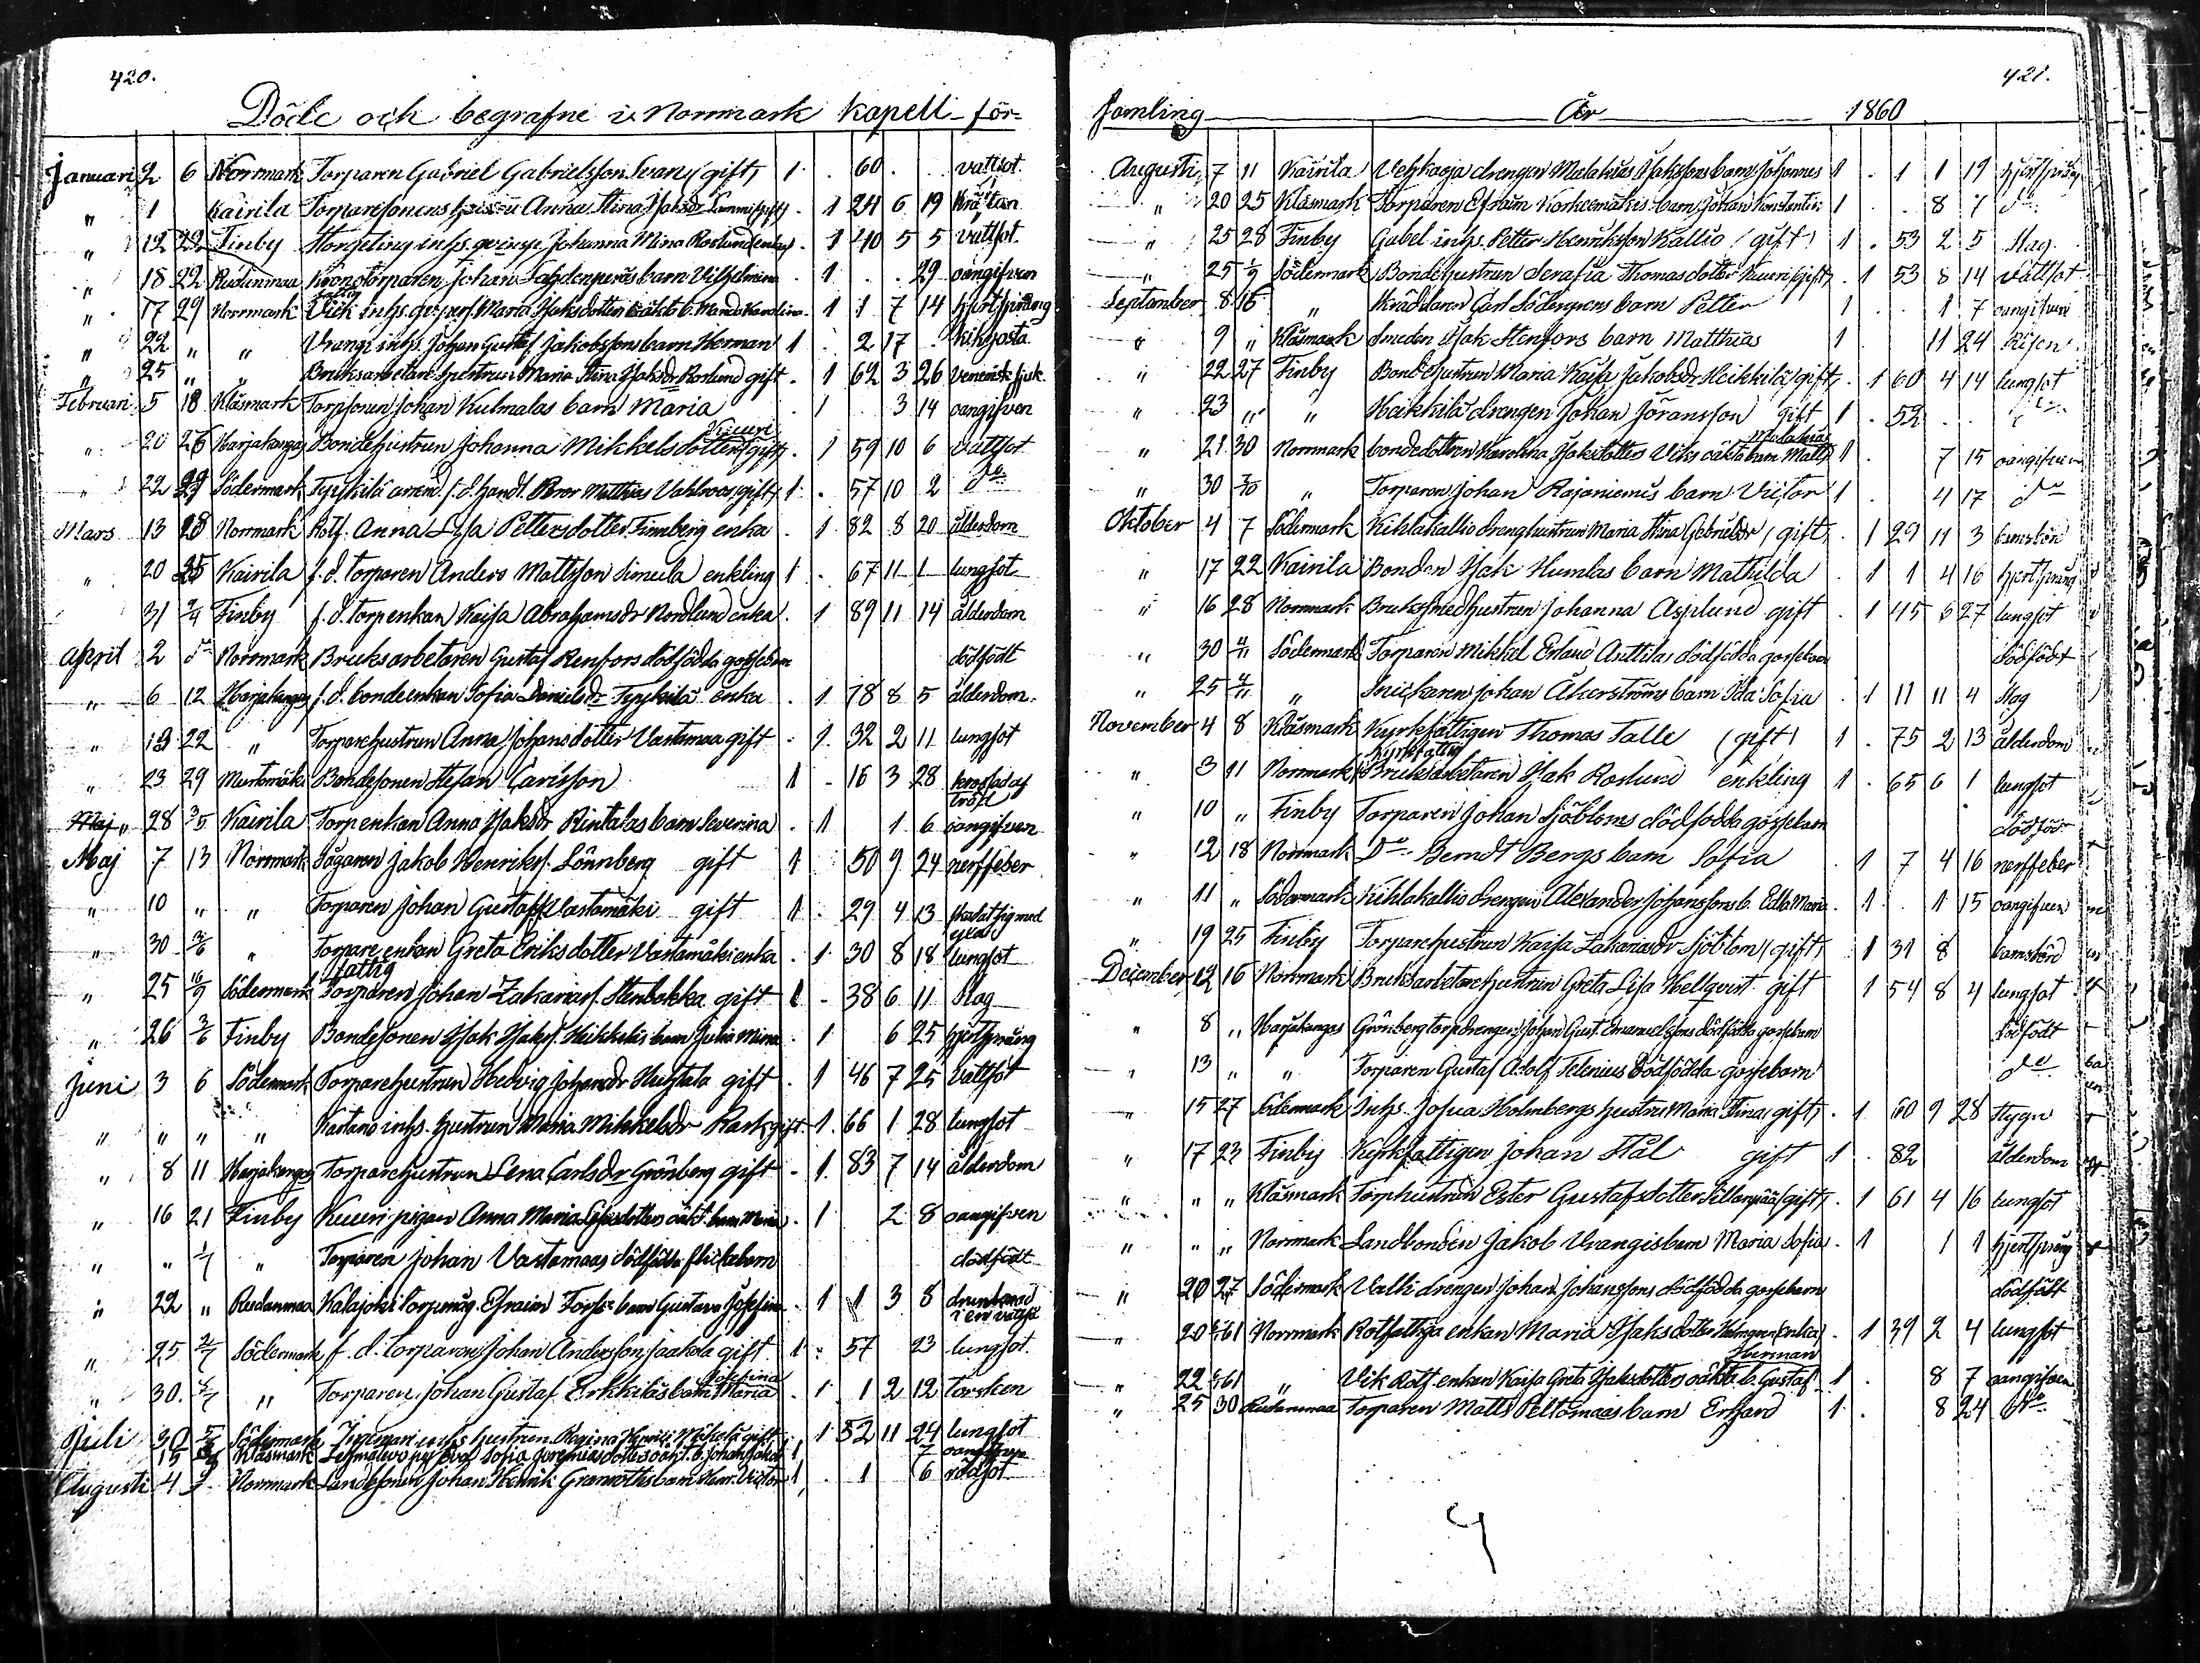 420.
Döde och begrafne i Norrmark kapell-för-
Januari 2 6 Norrmark Torparen Gabriel Gabrielsson Ivars (gift) 1 . 60 . . vattsot
" 1 Kairila Torparesonens hustru Anna Stina Isaksdr (gift) . 1 24 6 19 kräftan
" 12 22 Finby inhs. Johanna Mina Roslund (enka) . 1 40 5 5 vattsot
" 18 22 Rudanmaa Kronotorparen Johan barn Vilhelmina . 1 . . 29 oangifven
" 17 29 Norrmark Vik inhs. Maria Isaksdotters oäkta b. Manda Karolina . 1 1 7 14 hjertsprång
" 22 " " Vrangi inhs. Johan Gustaf Jakobssons barn Herman 1 . 2 17 . kikhosta
" 25 " " Bruksarbetare hustrun Maria Stina Isaksdr Roslund gift . 1 62 3 26 venerisk sjuk.
Februari 5 18 Klåsmark Torpsonen Johan Kulmalas barn Maria . 1 . 3 14 oangifven
" 20 26 Harjakangas Bondehustrun Johanna Mikkelsdotter Kuuri (gift) . 1 59 10 6 vattsot
" 22 29 Södermark Tyyskilä arrend. f.d. handl. Bror Matthias Vahlroos (gift) 1 . 57 10 2 do
Mars 13 28 Norrmark Rotf. Anna Lisa Pettersdotter Finnberg enka . 1 82 8 20 ålderdom
" 20 25 Kairila f.d. torparen Anders Mattsson Simula enkling 1 . 67 11 1 lungsot
31 9/4 Finby f.d. torpenkan Kaisa Abrahamsdr Nordlund enka . 1 89 11 14 ålderdom
April 2 do Norrmark Bruksarbetaren Gustaf Renfors dödfödda gossebarn dödfödt
" 6 12 Harjakangas f.d. bondeenkan Sofia Danielsdr Tyykilä enka . 1 78 8 5 ålderdom
" 19 22 " Torparehustrun Anna Johansdotter Vastamaa gift . 1 32 2 11 lungsot
" 23 29 Mustomäki Bondesonen Stefan Carlsson 1 - 16 3 28 krossad af träd
Maj " 28 3/5 Kairila Torpenkan Anna Isaksdr Rintalas barn Severina . 1 1 6 oangifven
Maj 7 13 Norrmark Sågaren Jakob Henriksf. Lönnberg gift 1 50 9 24 nerffeber
" 10 " " Torparen Johan Gustafs Vastamäki gift 1 . 29 4 13 skadat sig med yxa
" 30 3/6 " Torpare enkan Greta Eriksdotter Vastamäki enka . 1 30 8 18 lungsot
" 25 10/9 Södermark fattig Torparen Johan Zakariasf. Stenbokka gift 1 - 38 6 11 slag
" 26 3/6 Finby Bondesonen Isak Isaksf. Heikkiläs barn Julia Mina . 1 6 25 hjertsprång
Juni 3 6 Södermark Torparehustrun Hedvig Johansdr Huhtala gift . 1 46 7 25 vattsot
" " " " Kartano inhs. hustrun Maria Mikkelsdr gift . 1 66 1 28 lungsot
" 8 11 Harjakangas Torparehustrun Lena Carlsdr Grönberg gift - 1 83 7 14 ålderdom
" 16 21 Finby Kuuri pigan Anna Maria oäkt. barn Maria . 1 2 8 oangifven
" " 1/7 " Torparen Johan Vastamaas dödfödda flickebarn dödfödt
" 22 " Rudanmaa Kalajoki Efraim barn Gustava Josefina . 1 1 3 8 drunknad i en
" 25 2/7 Södermark f.d. torparen Johan Andersson Jaakola gift 1 . 57 23 lungsot
" 30. 4/7 " Torparen Johan Gustaf Erkkiläs barn Maria Josefina . 1 1 2 12 torsken
Juli 30 5/8 Södermark inhs. hustrun Regina Henriksd. gift . 1 52 11 24 lungsot
15 Klåsmark Sofia Jeremiasdotters oäkt. b. Johan Jakob 1 7 oangifven
Augusti 4 Norrmark Landbsonen Johan Henrik Granroths barn Victor 1 . 1 6 rödsot
421.
samling År 1860
Augusti 7 11 Kairila drengen Malakias Isakssons barn Johannes 1 . 1 1 19 hjertsprång
" 20 25 Klåsmark Torparen Efraim Korkeemäkis barn Johan Konstantin 1 . . 8 7 do
" 25 28 Finby Gabel inhs. Petter Henriksson Kallio (gift) 1 . 53 2 5 slag
" 25 1/9 Södermark Bondehustrun Serafia Thomasdotter Kuuri (gift) . 1 53 8 14 vattsot
September 8 16 " Skräddaren Carl Södergrens barn Petter 1 . . 1 7 oangifven
" 9 " Klåsmark Smeden Isak Stenfors barn Matthias 1 11 24 risen
" 22 27 Finby Bondhustrun Maria Kaisa Jakobsdr Heikkilä (gift) . 1 60 4 14 lungsot
" 23 " " Heikkilä drengen Johan Jöransson gift 1 . 52 . . do
" 21 30 Norrmark bondedottren Karolina Isaksdotters Viks oäkta barn Matts Malakias 1 . 7 15 oangifven
" 30 7/10 " Torparen Johan Rajaniemis barn Victor 1 . 4 17 do
Oktober 4 7 Södermark Kihlakallio drenghustrun Maria Stina Gabrielsdr (gift) . 1 29 11 3 barnsbörd
" 17 22 Kairila Bonden Isak Humlas barn Mathilda . 1 1 4 16 hjertsprång
" 16 28 Norrmark Brukssmedhustrun Johanna Asplund gift . 1 45 6 27 lungsot
" 30 4/11 Södermark Torparen Mikkel Erland Anttilas dödfödda gossebarn dödfödt
" 25 4/11 " Snickaren Johan Åkerströms barn Ida Sofia . 1 11 11 4 slag
November 4 8 Klåsmark Kyrkfattigen Thomas Talle (gift) 1 . 75 2 13 ålderdom
" 3 11 Norrmark kyrkfattig Bruksarbetaren Isak Roslund enkling 1 . 65 6 1 lungsot
" 10 " Finby Torparen Johan Sjöbloms dödfödda gossebarn dödfödt
" 12 18 Norrmark Do Berndt Bergs barn Sofia . 1 7 4 16 nerffeber
" 11 " Södermark Kihlakallio drengen Alexander Johanssons b. Edla Maria . 1 . 1 15 oangifven
" 19 25 Finby Torparehustrun Kaisa Zakariasdr Sjöblom (gift) 1 31 8 barnsbörd
December 12 16 Norrmark Bruksarbetarehustrun Greta Lisa Hellqvist gift 1 54 8 4 lungsot
" 8 " Harjakangas Grönberg torpdrengen Johan Gust. Emanuelssons dödfödda gossebarn dödfödt
" 13 " " Torparen Gustaf Adolf Felenius dödfödda gossebarn do
" 15 27 Södermark Inhs. Josua Holmbergs hustru Maria Stina (gift) . 1 60 9 28 stygn
" 17 23 Finby Kyrkfattigen Johan Stål gift 1 . 82 ålderdom
" " " Klåsmark Torphustrun Ester Gustafsdotter Sillanpää (gift) . 1 61 4 16 lungsot
" " " Norrmark Landbonden Jakob Vrangis barn Maria Sofia . 1 1 1 hjertsprång
" 20 27 Södermark Valli drengen Johan Johanssons dödfödda gossebarn dödfödt
" 20 61 Norrmark Rotfattiga enkan Maria Isaksdotter Holmgren (enka) . 1 39 2 4 lungsot
" 22 61 " Vik Rotf. enkan Kaisa Greta Isaksdotters oäkta b. Gustaf Herman 1 . 8 7 oangifven
" 25 30 Rudanmaa Torparen Matts Peltomaas barn Erhard 1 . 8 24 do